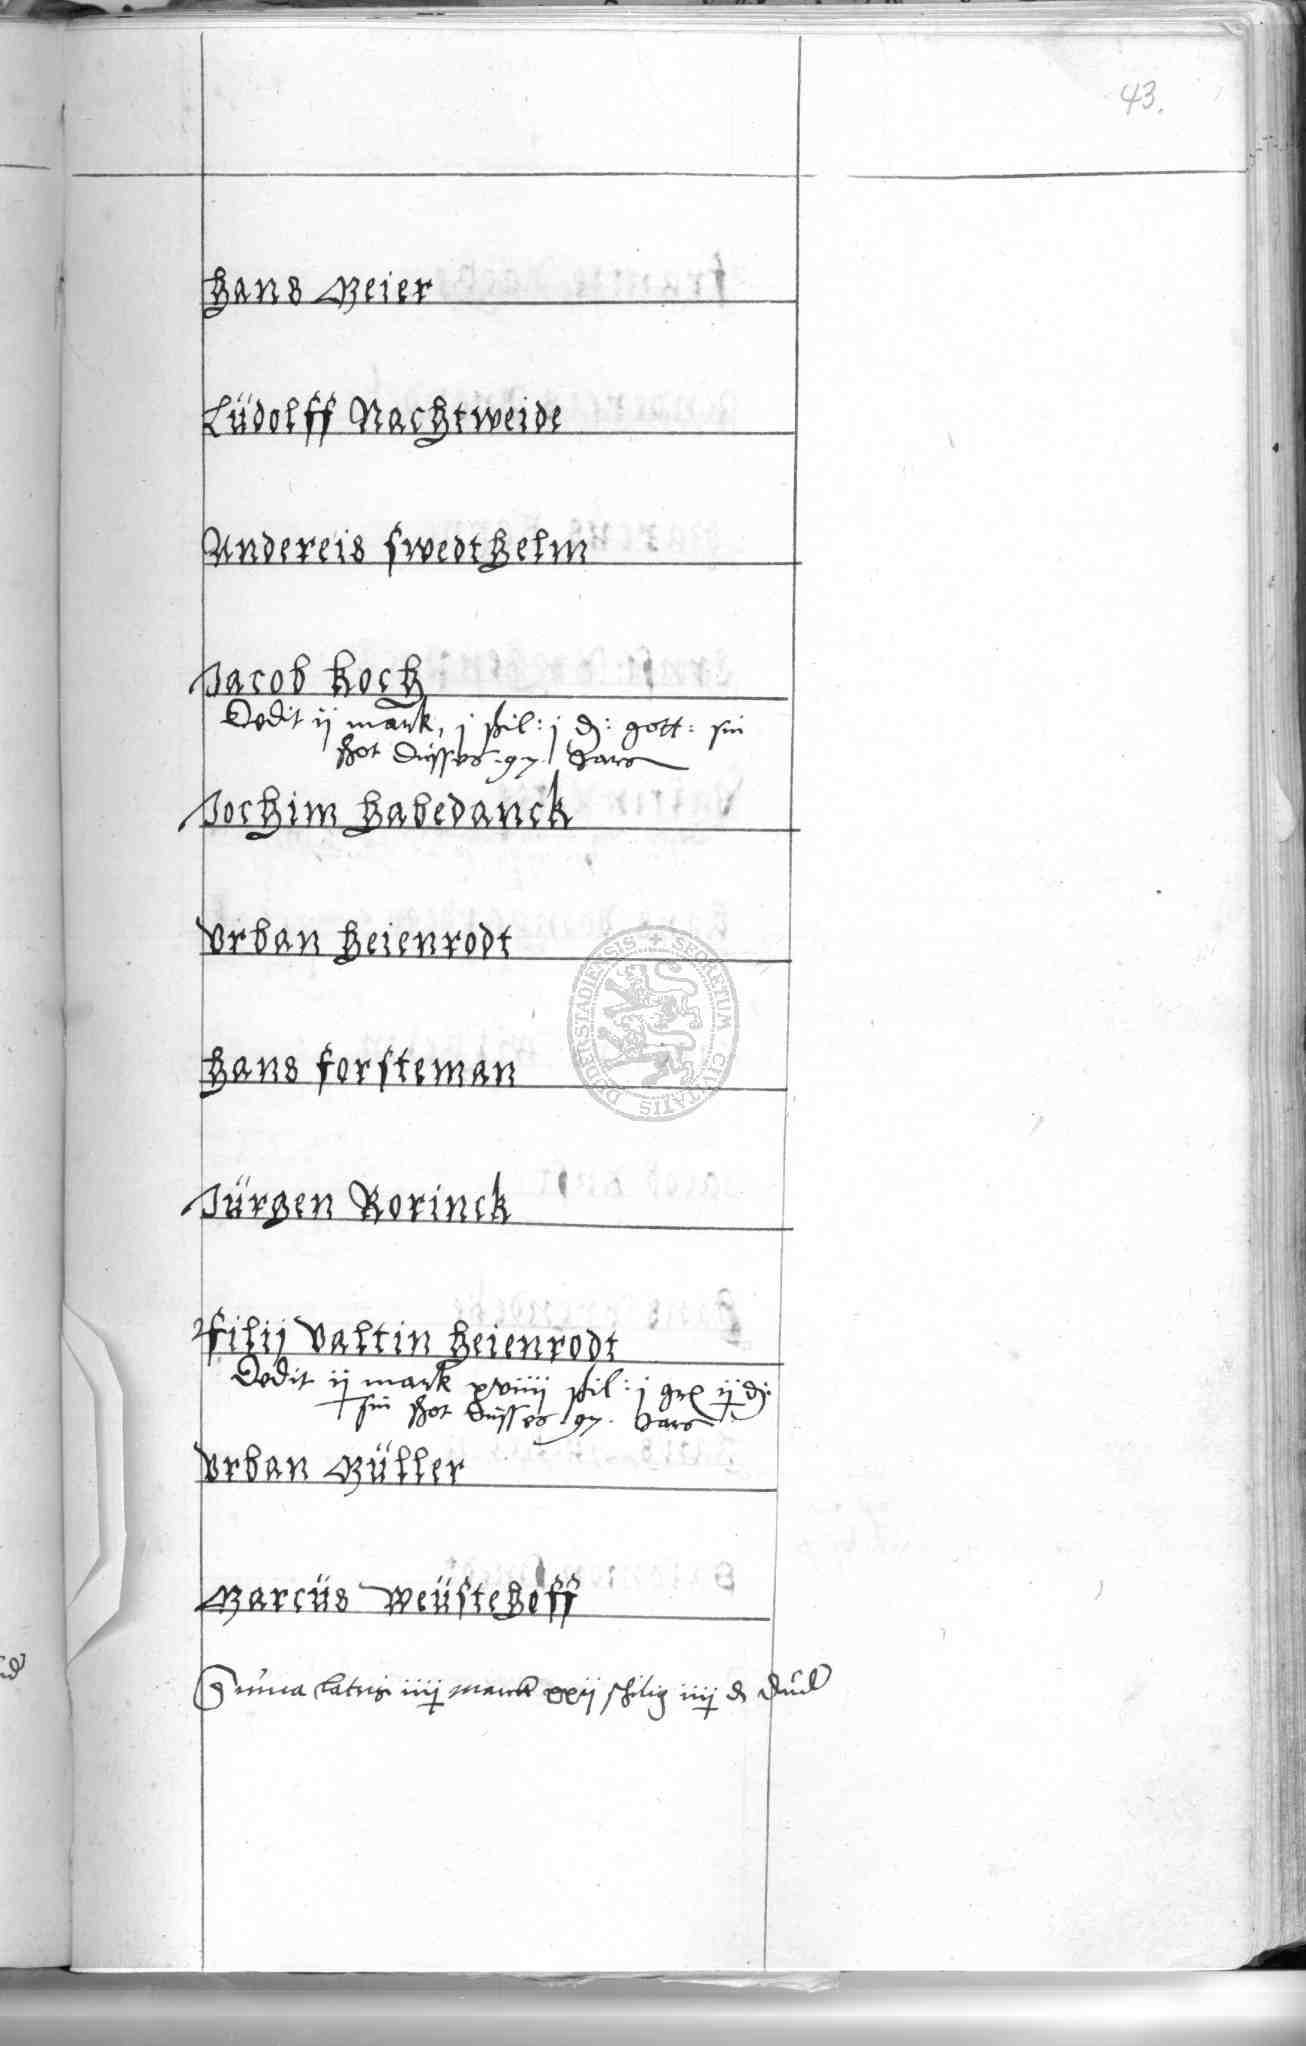 43.
Hans Meier
Lüdolff Nachtweide
Andereis Swedthelm
Jacob Koch
Dedit ij mark, j ßil: j d: gott: sin
schot düsses 97. Jars
Jochim Habedanck
Urban Heienrodt
Hans Forsteman
Jürgen Rorinck
Filij Valtin Heienrodt
Dedit ij mark xviiij ßil: j iij d:
sin schot düsses 97. Jars
Urban Müller
Marcüs Weüstehoff
Summa lateris iiij marck xxij schilig iiij d
SECRETUM CIVITATIS DUDERSTADIENSIS